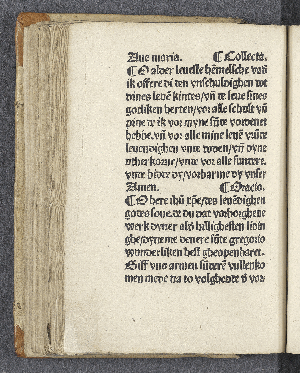 Aue maria. ¶ Collecta.
¶ O alder leueste hēmelsche vad
ik offere di den vnschuldighen dot
dines leuē kindes/vn̄ te leue sines
godliken herten/vor alle schult vn̄
pine de ik vor myne sūde vordenet
hebbe. vn̄ vor alle mine leuē vrūde
leuendighen vnde doden/vn̄ dyne
vtherkorne/vnde vor alle sundere.
vnde bidde dy/vorbarme dy vnser
Amen. ¶ Oracio.
¶ O here ihū xp̄e/des leuēdighen
godes sone. de du dat vorborghene
werk dyner alds hillighesten lidin
ghe/dyneme denere sūte gregorio
wunderliken hest gheapenbaret.
Giff vns armen sūderē vullenko
men mede da to volghende vn̄ vor